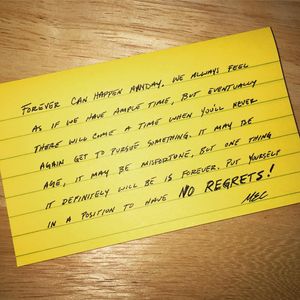 FOREVER CAN HAPPEN ANYDAY. WE ALWAYS FEEL
AS IF WE HAVE AMPLE TIME, BUT EVENTUALLY
THERE WILL COME A TIME WHEN YOU'LL NEVER
AGAIN GET TO PURSUE SOMETHING. IT MAY BE
AGE, IT MAY BE MISFORTUNE, BUT ONE THING
IT DEFINITELY WILL BE IS FOREVER. PUT YOURSELF
IN A POSITION TO HAVE NO REGRETS!
MEC